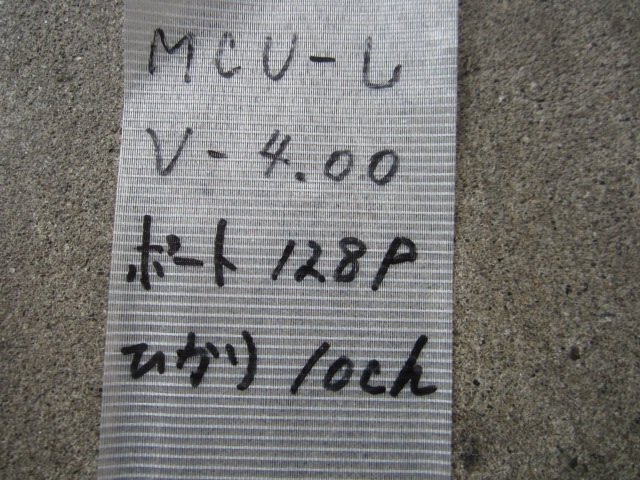 MCU-L
V-4.00
ポート 128P
ひかり 10ch